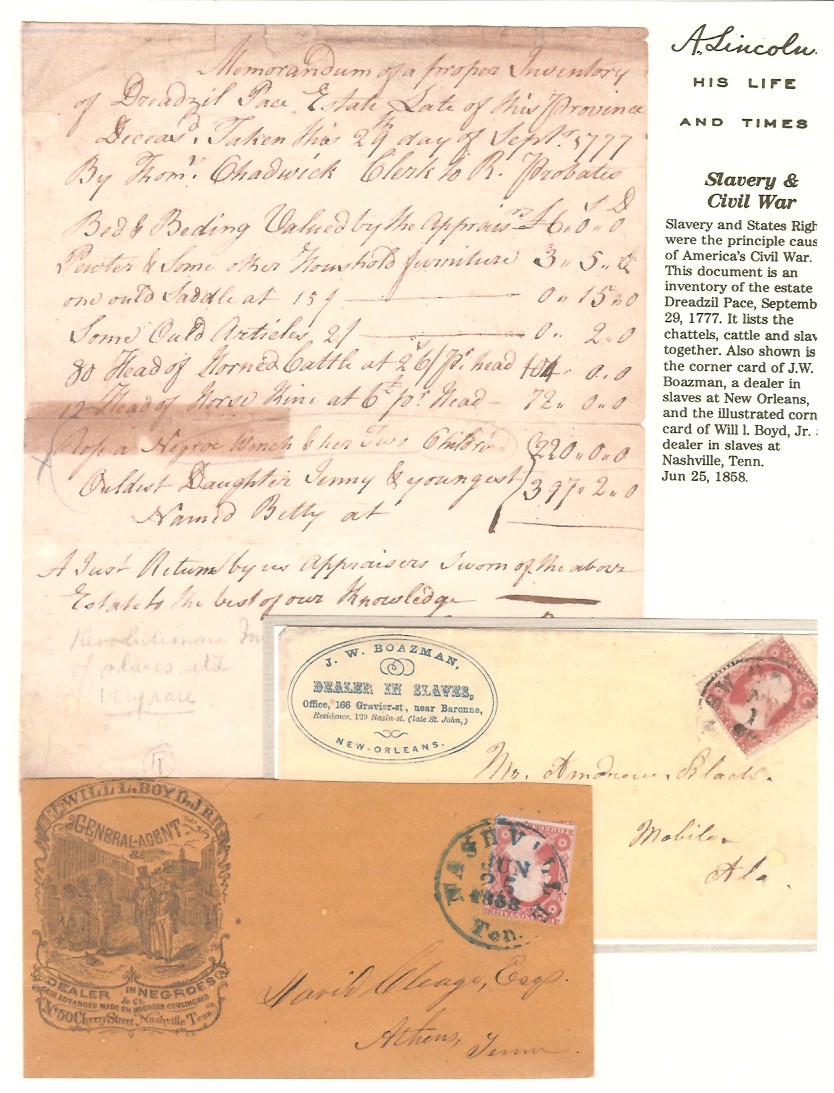 Memorandum of a proper Inventory
of Dreadzil Pace Estate Late of this Province
Deceasd. Taken this 29th day of Septr. 1777
By Thoms. Chadwick Clerk to R. Probates
£ S D
Bed & Beding Valued by the Appraisrs £6 ,, 0 ,, 0
Pewter & Some other Houshold furniture 3 ,, 5 ,, 0
one ould Saddle at 15/ 0 ,, 15 ,, 0
Some Ould Articles 2/ 0 ,, 2 ,, 0
80 Head of Horned Cattle at 26/ pr head 104 ,, 0 ,, 0
12 Head of Horse Kine at 6£ pr Head 72 ,, 0 ,, 0
a Negroe Wench & her Two Children 220 ,, 0 ,, 0
Ouldest Daughter Jenny & youngest 397 ,, 2 ,, 0
Named Betty at
A Just Return by us Appraisers Sworn of the above
Estate to the best of our Knowledge
Revolutionary
of slaves
very rare
A. Lincoln
HIS LIFE
AND TIMES
Slavery &
Civil War
Slavery and States Righ
were the principle caus
of America's Civil War.
This document is an
inventory of the estate
Dreadzil Pace, Septemb
29, 1777. It lists the
chattels, cattle and slav
together. Also shown is
the corner card of J.W.
Boazman, a dealer in
slaves at New Orleans,
and the illustrated corn
card of Will l. Boyd, Jr.
dealer in slaves at
Nashville, Tenn.
Jun 25, 1858.
J. W. BOAZMAN,
DEALER IN SLAVES,
Office, 166 Gravier-st, near Baronne,
Residence, 129 Basin-st. (late St. John,)
NEW-ORLEANS.
Mr. Andrew Black.
Mobile
Ala.
WILL L. BOYD, JR
GENERAL AGENT
DEALER IN NEGROES
& C.
CASH ADVANCES MADE ON NEGROES CONSIGNED
No 50 Cherry Street, Nashville Tenn
NASHVILLE
JUN
25
1858
Ten.
David Cleage, Esq.
Athens,
Tenn